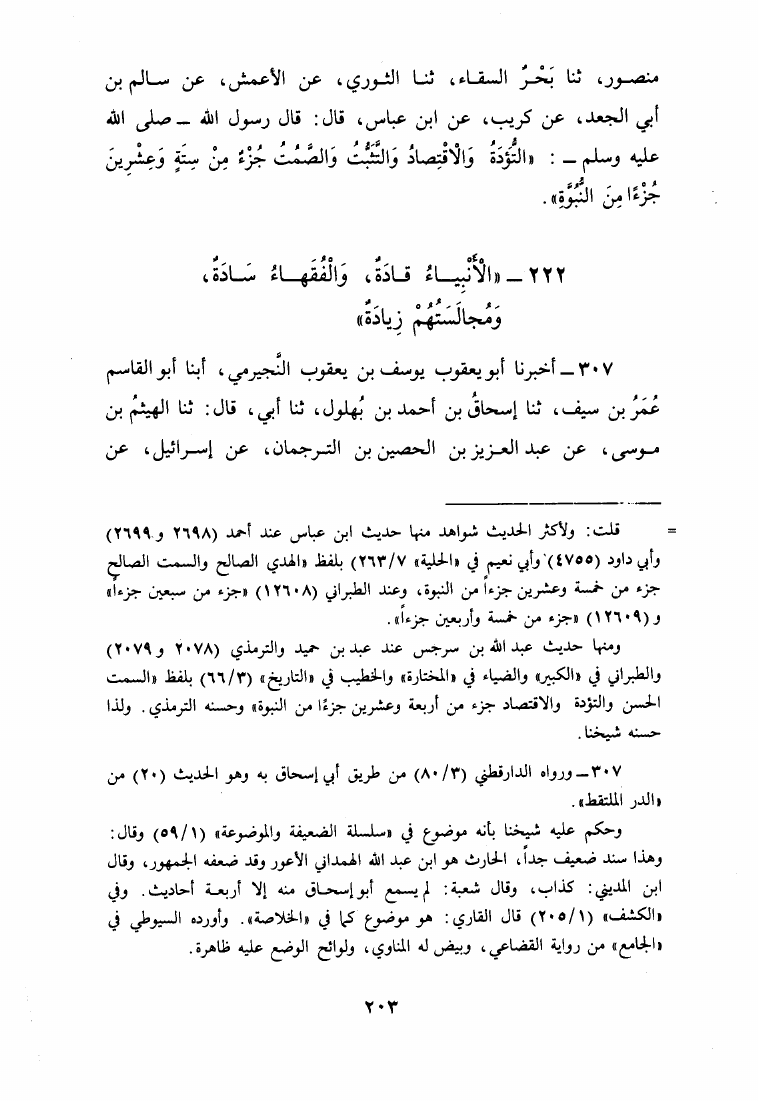 منصور، ثنا بَحْرٌ السقاء، ثنا الثوري، عن الأعمش، عن سالم بن
أبي الجعد، عن كريب، عن ابن عباس، قال: قال رسول الله ــ صلى الله
عليه وسلم ــ : «التُّؤَدَةُ وَالْاقْتِصادُ وَالتَّثَبُّتُ وَالصَّمْتُ جُزْءٌ مِنْ سِتَّةٍ وَعِشْرِينَ
جُزْءًا مِنَ النُّبُوَّةِ».
٢٢٢ ــ «الْأَنْبِيَاءُ قادَةٌ، وَالْفُقَهاءُ سَادَةٌ،
وَمُجالَسَتُهُمْ زِيادَةٌ»
٣٠٧ ــ أخبرنا أبو يعقوب يوسف بن يعقوب النَّجيرمي، أبنا أبو القاسم
عُمَرُ بن سيف، ثنا إسحاقُ بن أحمد بن بُهلول، ثنا أبي، قال: ثنا الهيثمُ بن
موسى، عن عبد العزيز بن الحصين بن الترجمان، عن إسرائيل، عن
= قلت: ولأكثر الحديث شواهد منها حديث ابن عباس عند أحمد (٢٦٩٨ و ٢٦٩٩)
وأبي داود (٤٧٥٥) وأبي نعيم في «الحلية» ٢٦٣/٧) بلفظ «الهدي الصالح والسمت الصالح
جزء من خمسة وعشرين جزءاً من النبوة، وعند الطبراني (١٢٦٠٨) «جزء من سبعين جزءاً»
و (١٢٦٠٩) «جزء من خمسة وأربعين جزءاً».
ومنها حديث عبد الله بن سرجس عند عبد بن حميد والترمذي (٢٠٧٨ و ٢٠٧٩)
والطبراني في «الكبير» والضياء في «المختارة» والخطيب في «التاريخ» (٦٦/٣) بلفظ «السمت
الحسن والتؤدة والاقتصاد جزء من أربعة وعشرين جزءًا من النبوة» وحسنه الترمذي. ولذا
حسنه شيخنا.
٣٠٧ ــ ورواه الدارقطني (٨٠/٣) من طريق أبي إسحاق به وهو الحديث (٢٠) من
«الدر الملتقط».
وحكم عليه شيخنا بأنه موضوع في «سلسلة الضعيفة والموضوعة» (٥٩/١) وقال:
وهذا سند ضعيف جداً، الحارث هو ابن عبد الله الهمداني الأعور وقد ضعفه الجمهور، وقال
ابن المديني: كذاب، وقال شعبة: لم يسمع أبو إسحاق منه إلا أربعة أحاديث. وفي
«الكشف» (٢٠٥/١) قال القاري: هو موضوع كما في «الخلاصة». وأورده السيوطي في
«الجامع» من رواية القضاعي، وبيض له المناوي، ولوائح الوضع عليه ظاهرة.
٢٠٣